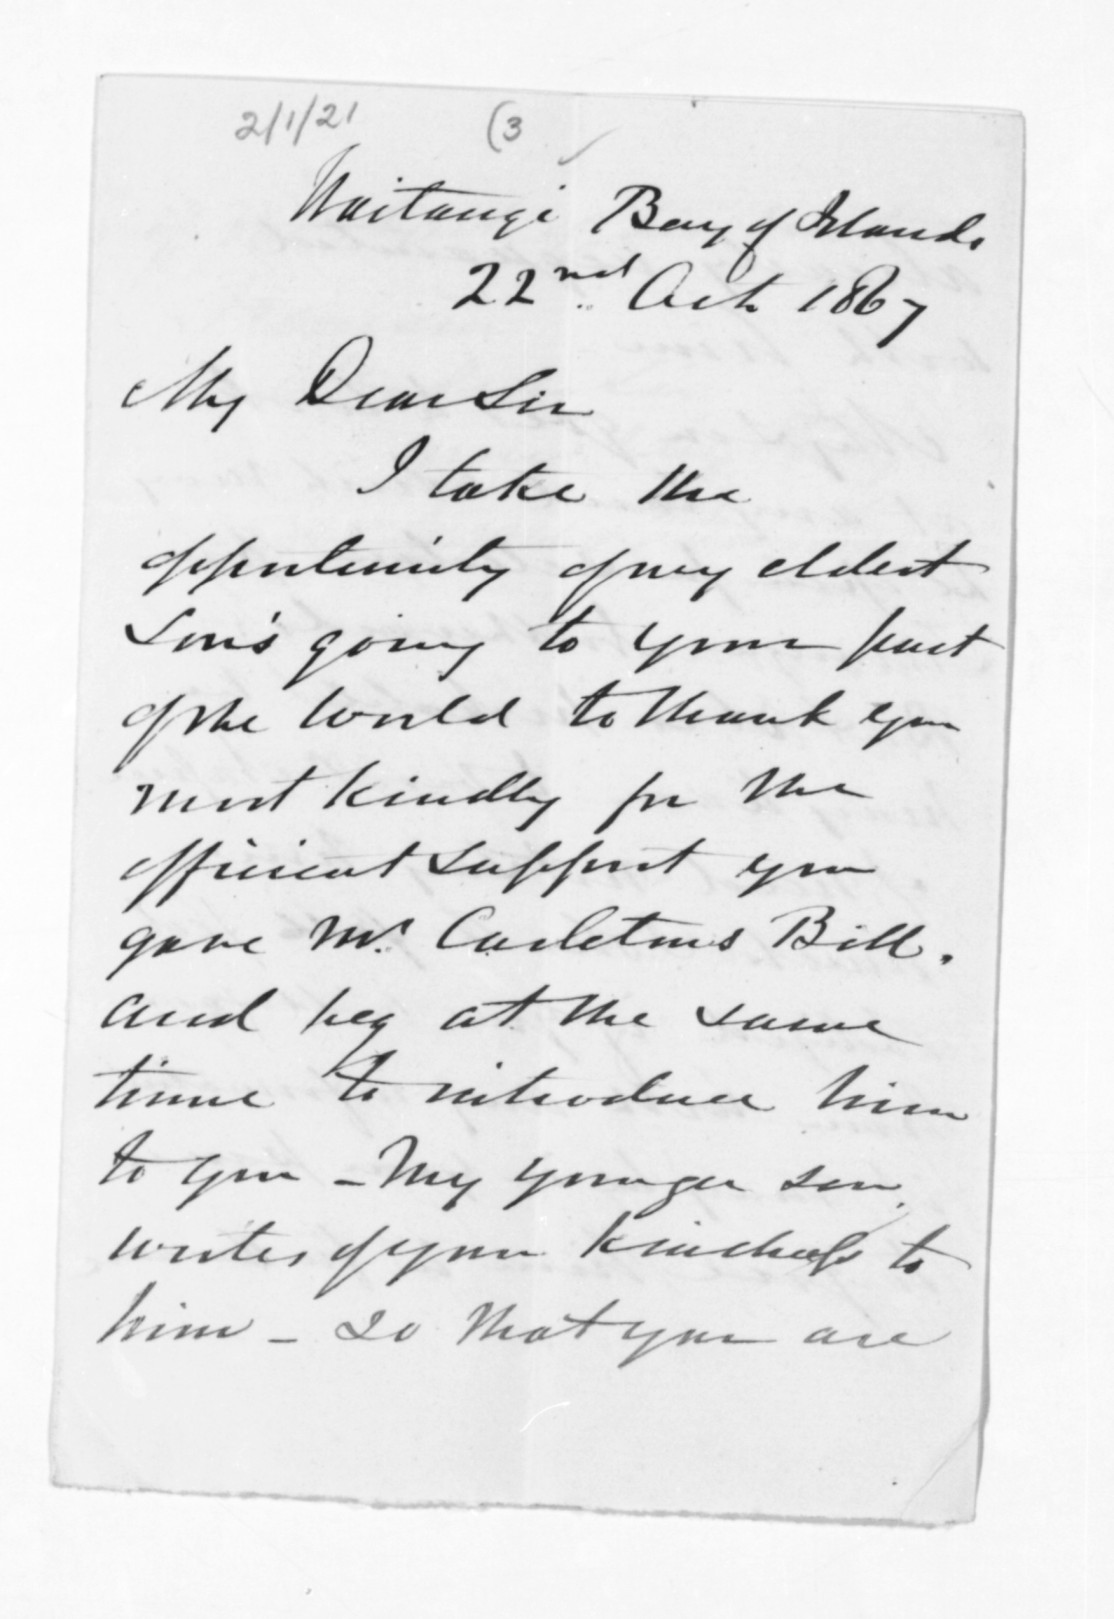 2/1/21 (3
Waitangi Bay of Islands
22nd Oct 1867
My Dear Sir
I take the
opportunity of my eldest
Son's going to your part
of the world to thank you
most kindly for the
efficient support you
gave Mr. Carletons Bill.
and beg at the same
time to introduce him
to you - My younger son
writes of your kindness to
him - so that you are